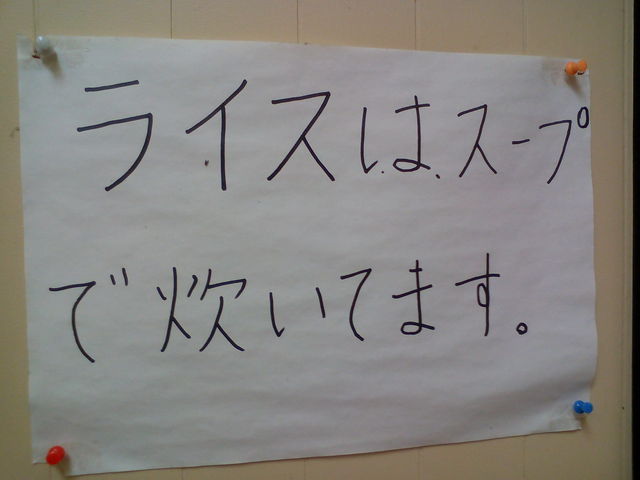 ライスは、スープ
で炊いてます。